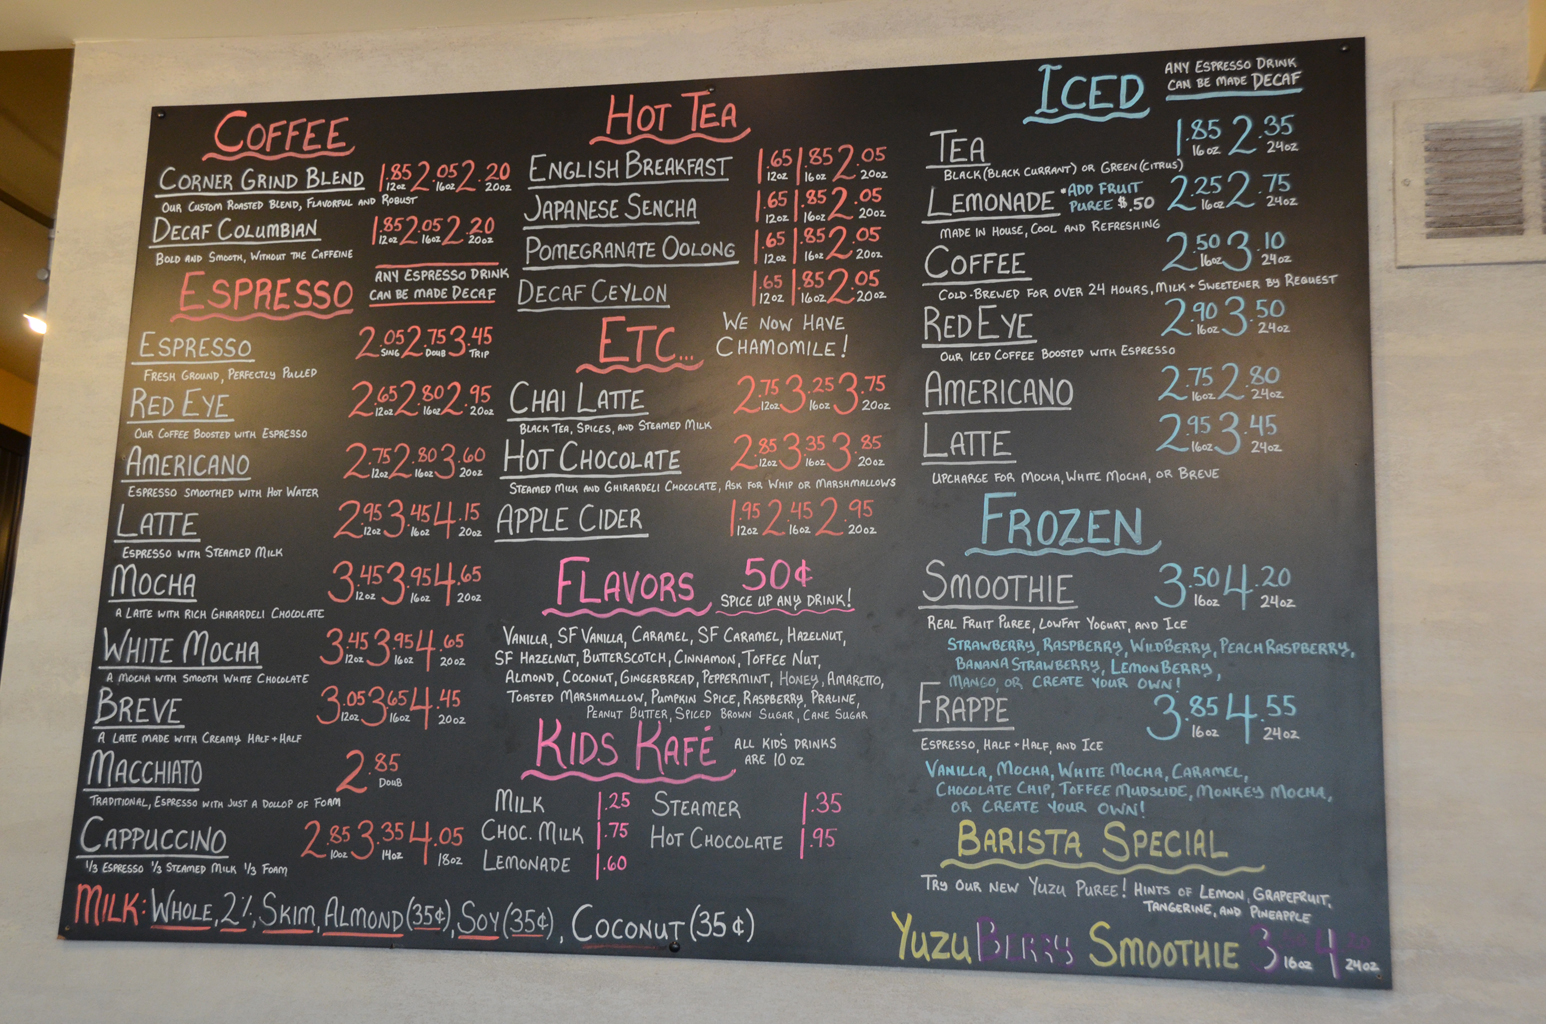 COFFEE
CORNER GRIND BLEND 1.85 12oz 2.05 16oz 2.20 20oz
OUR CUSTOM ROASTED BLEND, FLAVORFUL AND ROBUST
DECAF COLUMBIAN 1.85 12oz 2.05 16oz 2.20 20oz
BOLD AND SMOOTH, WITHOUT THE CAFFEINE
ESPRESSO
ANY ESPRESSO DRINK
CAN BE MADE DECAF
ESPRESSO 2.05 SING 2.75 DOUB 3.45 TRIP
FRESH GROUND, PERFECTLY PULLED
RED EYE 2.65 12oz 2.80 16oz 2.95 20oz
OUR COFFEE BOOSTED WITH ESPRESSO
AMERICANO 2.75 12oz 2.80 16oz 3.60 20oz
ESPRESSO SMOOTHED WITH HOT WATER
LATTE 2.95 12oz 3.45 16oz 4.15 20oz
ESPRESSO WITH STEAMED MILK
MOCHA 3.45 12oz 3.95 16oz 4.65 20oz
A LATTE WITH RICH GHIRARDELI CHOCOLATE
WHITE MOCHA 3.45 12oz 3.95 16oz 4.65 20oz
A MOCHA WITH SMOOTH WHITE CHOCOLATE
BREVE 3.05 12oz 3.65 16oz 4.45 20oz
A LATTE MADE WITH CREAMY HALF + HALF
MACCHIATO 2.85 DOUB
TRADITIONAL, ESPRESSO WITH JUST A DOLLOP OF FOAM
CAPPUCCINO 2.85 10oz 3.35 14oz 4.05 18oz
1/3 ESPRESSO 1/3 STEAMED MILK 1/3 FOAM
MILK: WHOLE, 2%, SKIM, ALMOND (35¢), SOY (35¢), COCONUT (35¢)
HOT TEA
ENGLISH BREAKFAST 1.65 12oz 1.85 16oz 2.05 20oz
JAPANESE SENCHA 1.65 12oz 1.85 16oz 2.05 20oz
POMEGRANATE OOLONG 1.65 12oz 1.85 16oz 2.05 20oz
DECAF CEYLON 1.65 12oz 1.85 16oz 2.05 20oz
ETC...
WE NOW HAVE
CHAMOMILE!
CHAI LATTE 2.75 12oz 3.25 16oz 3.75 20oz
BLACK TEA, SPICES, AND STEAMED MILK
HOT CHOCOLATE 2.85 12oz 3.35 16oz 3.85 20oz
STEAMED MILK AND GHIRARDELI CHOCOLATE, ASK FOR WHIP OR MARSHMALLOWS
APPLE CIDER 1.95 12oz 2.45 16oz 2.95 20oz
FLAVORS 50¢
SPICE UP ANY DRINK!
VANILLA, SF VANILLA, CARAMEL, SF CARAMEL, HAZELNUT,
SF HAZELNUT, BUTTERSCOTCH, CINNAMON, TOFFEE NUT,
ALMOND, COCONUT, GINGERBREAD, PEPPERMINT, HONEY, AMARETTO,
TOASTED MARSHMALLOW, PUMPKIN SPICE, RASPBERRY, PRALINE,
PEANUT BUTTER, SPICED BROWN SUGAR, CANE SUGAR
KIDS KAFÉ
ALL KID'S DRINKS
ARE 10 OZ
MILK 1.25 STEAMER 1.35
CHOC. MILK 1.75 HOT CHOCOLATE 1.95
LEMONADE 1.60
ICED
ANY ESPRESSO DRINK
CAN BE MADE DECAF
TEA 1.85 16oz 2.35 24oz
BLACK (BLACK CURRANT) OR GREEN (CITRUS)
LEMONADE •ADD FRUIT PUREE $.50 2.25 16oz 2.75 24oz
MADE IN HOUSE, COOL AND REFRESHING
COFFEE 2.50 16oz 3.10 24oz
COLD-BREWED FOR OVER 24 HOURS, MILK + SWEETENER BY REQUEST
RED EYE 2.90 16oz 3.50 24oz
OUR ICED COFFEE BOOSTED WITH ESPRESSO
AMERICANO 2.75 16oz 2.80 24oz
LATTE 2.95 16oz 3.45 24oz
UPCHARGE FOR MOCHA, WHITE MOCHA, OR BREVE
FROZEN
SMOOTHIE 3.50 16oz 4.20 24oz
REAL FRUIT PUREE, LOWFAT YOGURT, AND ICE
STRAWBERRY, RASPBERRY, WILDBERRY, PEACH RASPBERRY,
BANANA STRAWBERRY, LEMONBERRY,
MANGO, OR CREATE YOUR OWN!
FRAPPE 3.85 16oz 4.55 24oz
ESPRESSO, HALF + HALF, AND ICE
VANILLA, MOCHA, WHITE MOCHA, CARAMEL,
CHOCOLATE CHIP, TOFFEE MUDSLIDE, MONKEY MOCHA,
OR CREATE YOUR OWN!
BARISTA SPECIAL
TRY OUR NEW YUZU PUREE! HINTS OF LEMON, GRAPEFRUIT,
TANGERINE, AND PINEAPPLE
YUZU BERRY SMOOTHIE 3 16oz 4 24oz